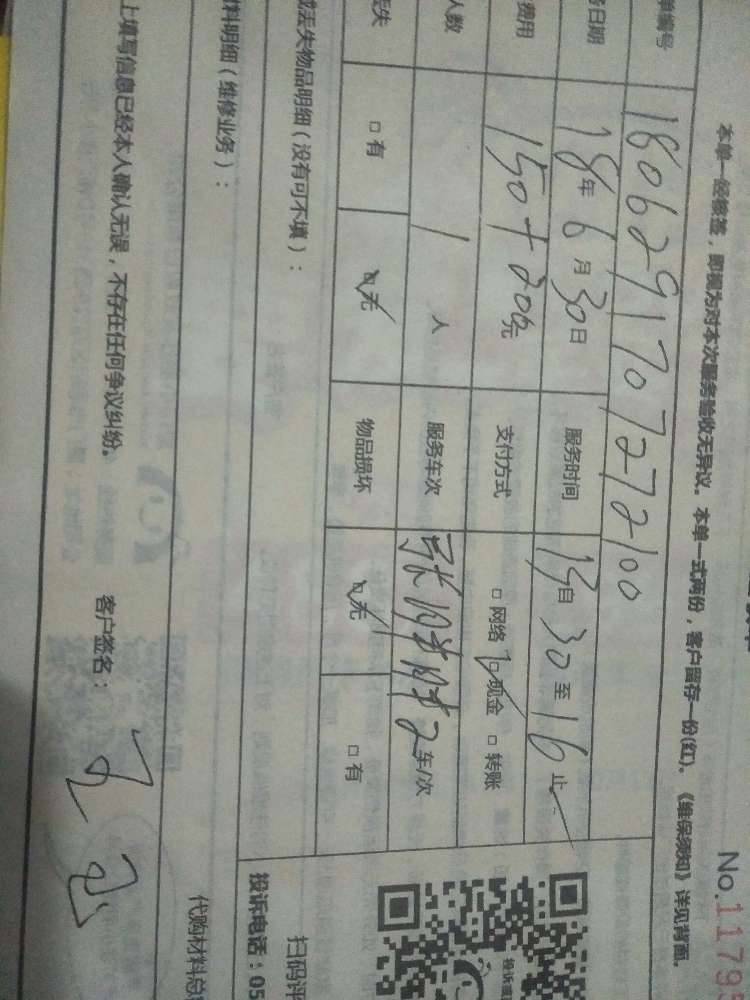 No.1179
本单一经修签，即视为对本次服务验收无异议。本单一式两份，客户留存一份(红)。《维保须知》详见背面。
单编号 1806291707272100
务日期 18年6月30日 服务时间 13自30至16止
费用 150+200元 支付方式 □网络 ☑现金 □转账
人数 1人 服务车次 2车/次
丢失 □有 ☑无 物品损坏 ☑无 □有
或丢失物品明细（没有可不填）：
扫码评
投诉电话：05
料明细（维修业务）：
代购材料总
上填写信息已经本人确认无误，不存在任何争议纠纷。 客户签名：